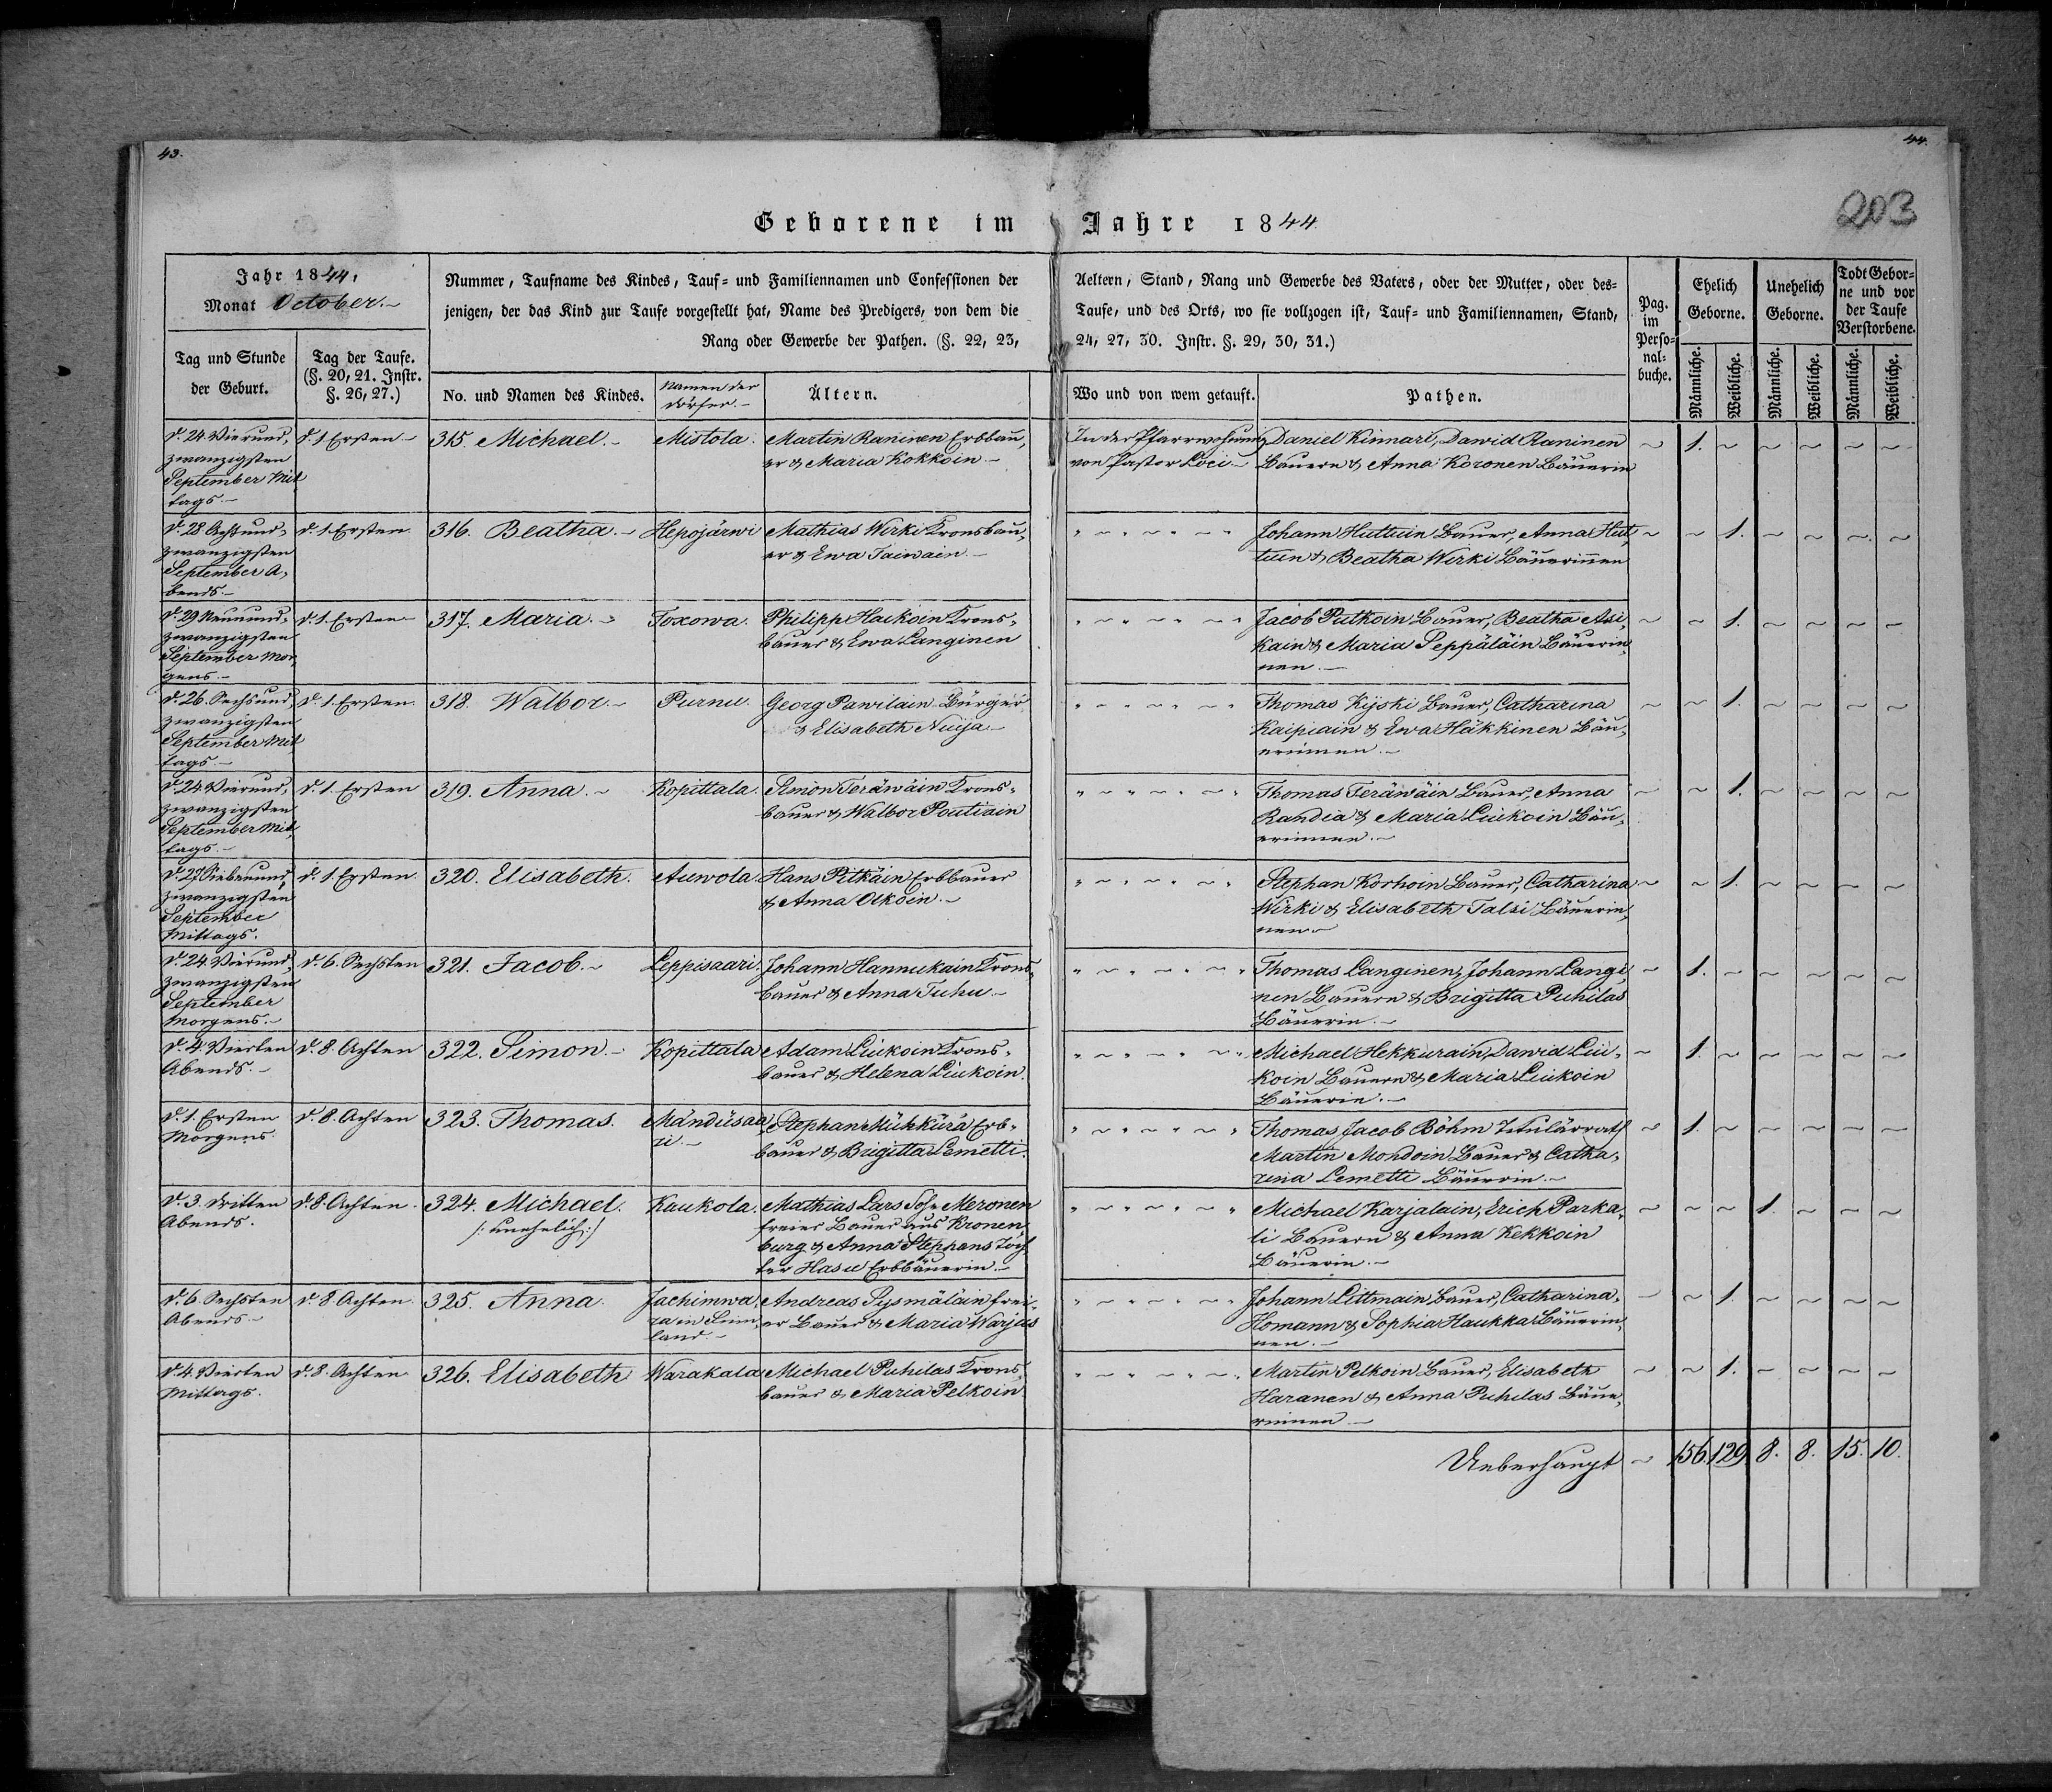 43.
44.
203
Geborene im Jahre 1844.
Jahr 1844,
Monat October.
Tag und Stunde
der Geburt.
Tag der Taufe.
(§. 20, 21. Instr.
§. 26, 27.)
Nummer, Taufname des Kindes, Tauf- und Familiennamen und Confessionen der
jenigen, der das Kind zur Taufe vorgestellt hat, Name des Predigers, von dem die
Rang oder Gewerbe der Pathen. (§. 22, 23,
No. und Namen des Kindes.
Namen der
Dörfer.
Ältern.
Aeltern, Stand, Rang und Gewerbe des Vaters, oder der Mutter, oder des-
Taufe, und des Orts, wo sie vollzogen ist, Tauf- und Familiennamen, Stand,
24, 27, 30. Instr. §. 29, 30, 31.)
Wo und von wem getauft.
Pathen.
Pag.
im
Perso-
nal-
buche.
Ehelich
Geborne.
Unehelich
Geborne.
Todt Gebor-
ne und vor
der Taufe
Verstorbene.
Männliche.
Weibliche.
Männliche.
Weibliche.
Männliche.
Weibliche.
d. 24. Vierund,
zwanzigsten
September Mit
tags.
d. 1. Ersten
315. Michael.
Mistola.
Martin Raninen Erbbau,
er & Maria Kokkoin
In der Pfarrwohnung
von Pastor Loci
Daniel Kinnari, Dawid Raninen
Bauern & Anna Koronen Bäuerin
1.
d. 28 Achtund,
zwanzigsten
September A,
bends.
d. 1. Ersten.
316. Beatha.
Hepojärwi
Mathias Wirki Kronsbau,
er & Ewa Taiwain
Johann Huttuin Bauer, Anna Hut,
tuin & Beatha Wirki Bäuerinnen
1.
d. 29 Neunund,
zwanzigsten
September Mor,
gens.
d. 1. Ersten
317. Maria.
Toxowa.
Philipp Haikoin Krons,
bauer & Ewa Langinen
Jacob Putkoin Bauer, Beatha Asi,
kain & Maria Peppäläin Bäuerin,
nen.
1.
d. 26. Sechsund,
zwanzigsten
September Mit
tags.
d. 1. Ersten.
318. Walbor.
Purnu.
Georg Pawilain Bürger
& Elisabeth Nuija
Thomas Kijski Bauer, Catharina
Kaipiain & Ewa Häkkinen Bäu,
erinnen.
1.
d. 24. Vierund,
zwanzigsten
September Mit,
tags.
d. 1. Ersten
319. Anna.
Kopittala.
Simon Teräwäin Krons,
bauer & Walbor Poutiain
Thomas Teräwäin Bauer, Anna
Randia & Maria Liukoin Bäu,
erinnen.
1.
d. 27. Siebenund,
zwanzigsten
September
Mittags.
d. 1. Ersten.
320. Elisabeth.
Auwola.
Hans Pitkäin Erbbauer
& Anna Olkoin.
Stephan Korhoin Bauer, Catharina
Wirki & Elisabeth Talsi Bäuerin,
nen
1.
d. 24. Vierund,
zwanzigsten
September
Morgens.
d. 6. Sechsten
321. Jacob.
Leppisaari.
Johann Hannukain Krons,
bauer & Anna Tuhu
Thomas Langinen, Johann Langi,
nen Bauern & Brigitta Puhilas
Bäuerin.
1.
d. 4. Vierten
Abends.
d. 8. Achten
322. Simon
Kopittala
Adam Liukoin Krons,
bauer & Helena Liukoin.
Michael Hekkurain, Dawid Liu,
koin Bauern & Maria Liukoin
Bäuerin.
1.
d. 1. Ersten
Morgens.
d. 8. Achten
323. Thomas.
Mändüsaa,
ri.
Stephan Mükkürä Erb,
bauer & Brigitta Lemetti.
Thomas Jacob Böhm Titulärrath
Martin Mondoin Bauer & Catha,
rina Lemetti Bäuerin.
1.
d. 3. Dritten
Abends.
d. 8. Achten.
324. Michael.
/: unehelich :/
Kaukola.
Mathias Lars Sohn Meronen
freier Bauer aus Kronen,
burg & Anna Stephans Töch
ter Hasu Erbbäuerin.
Michael Karjalain, Erich Parka,
li Bauern & Anna Kekkoin
Bäuerin.
1.
d. 6. Sechsten
Abends.
d. 8. Achten.
325. Anna.
Jachimwa,
ra in Finn,
land.
Andreas Pysmäläin frei,
er Bauer & Maria Warjus
Johann Littmain Bauer, Catharina
Homann & Sophia Haukka Bäuerin,
nen.
1.
d. 4. Vierten
Mittags.
d. 8. Achten
326. Elisabeth
Warakala
Michael Puhilas Krons,
bauer & Maria Pelkoin
Martin Pelkoin Bauer, Elisabeth
Haranen & Anna Puhilas Bäue,
rinnen
1.
Ueberhaupt 156. 129. 8. 8. 15. 10.